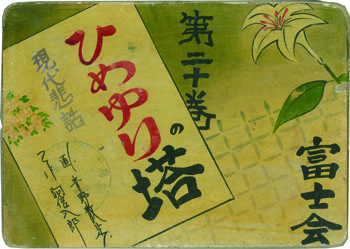 第二十巻
現代悲話
ひめゆりの塔
富士会